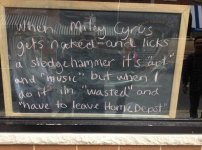 When Miley Cyrus
gets naked and licks
a sledgehammer it's "art"
and "music" but when I
do it I'm "wasted" and
"have to leave Home Depot"